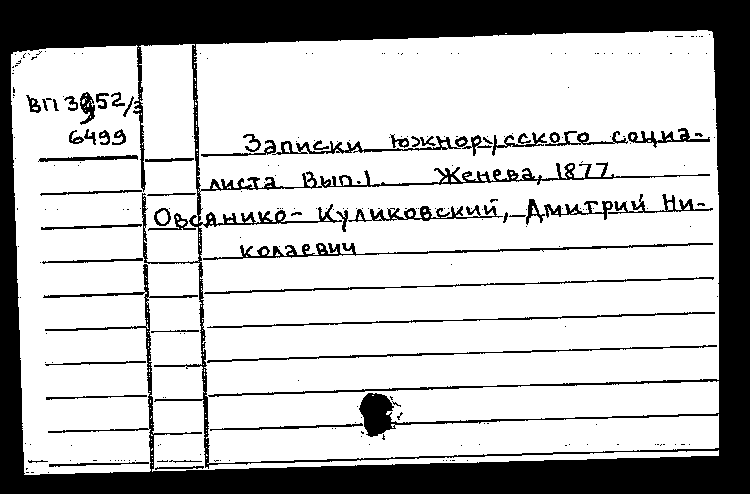 6499
Записки южнорусского социа-
листа Вып.1. Женева, 1877.
Овсянико-Куликовский, Дмитрий Ни-
колаевич